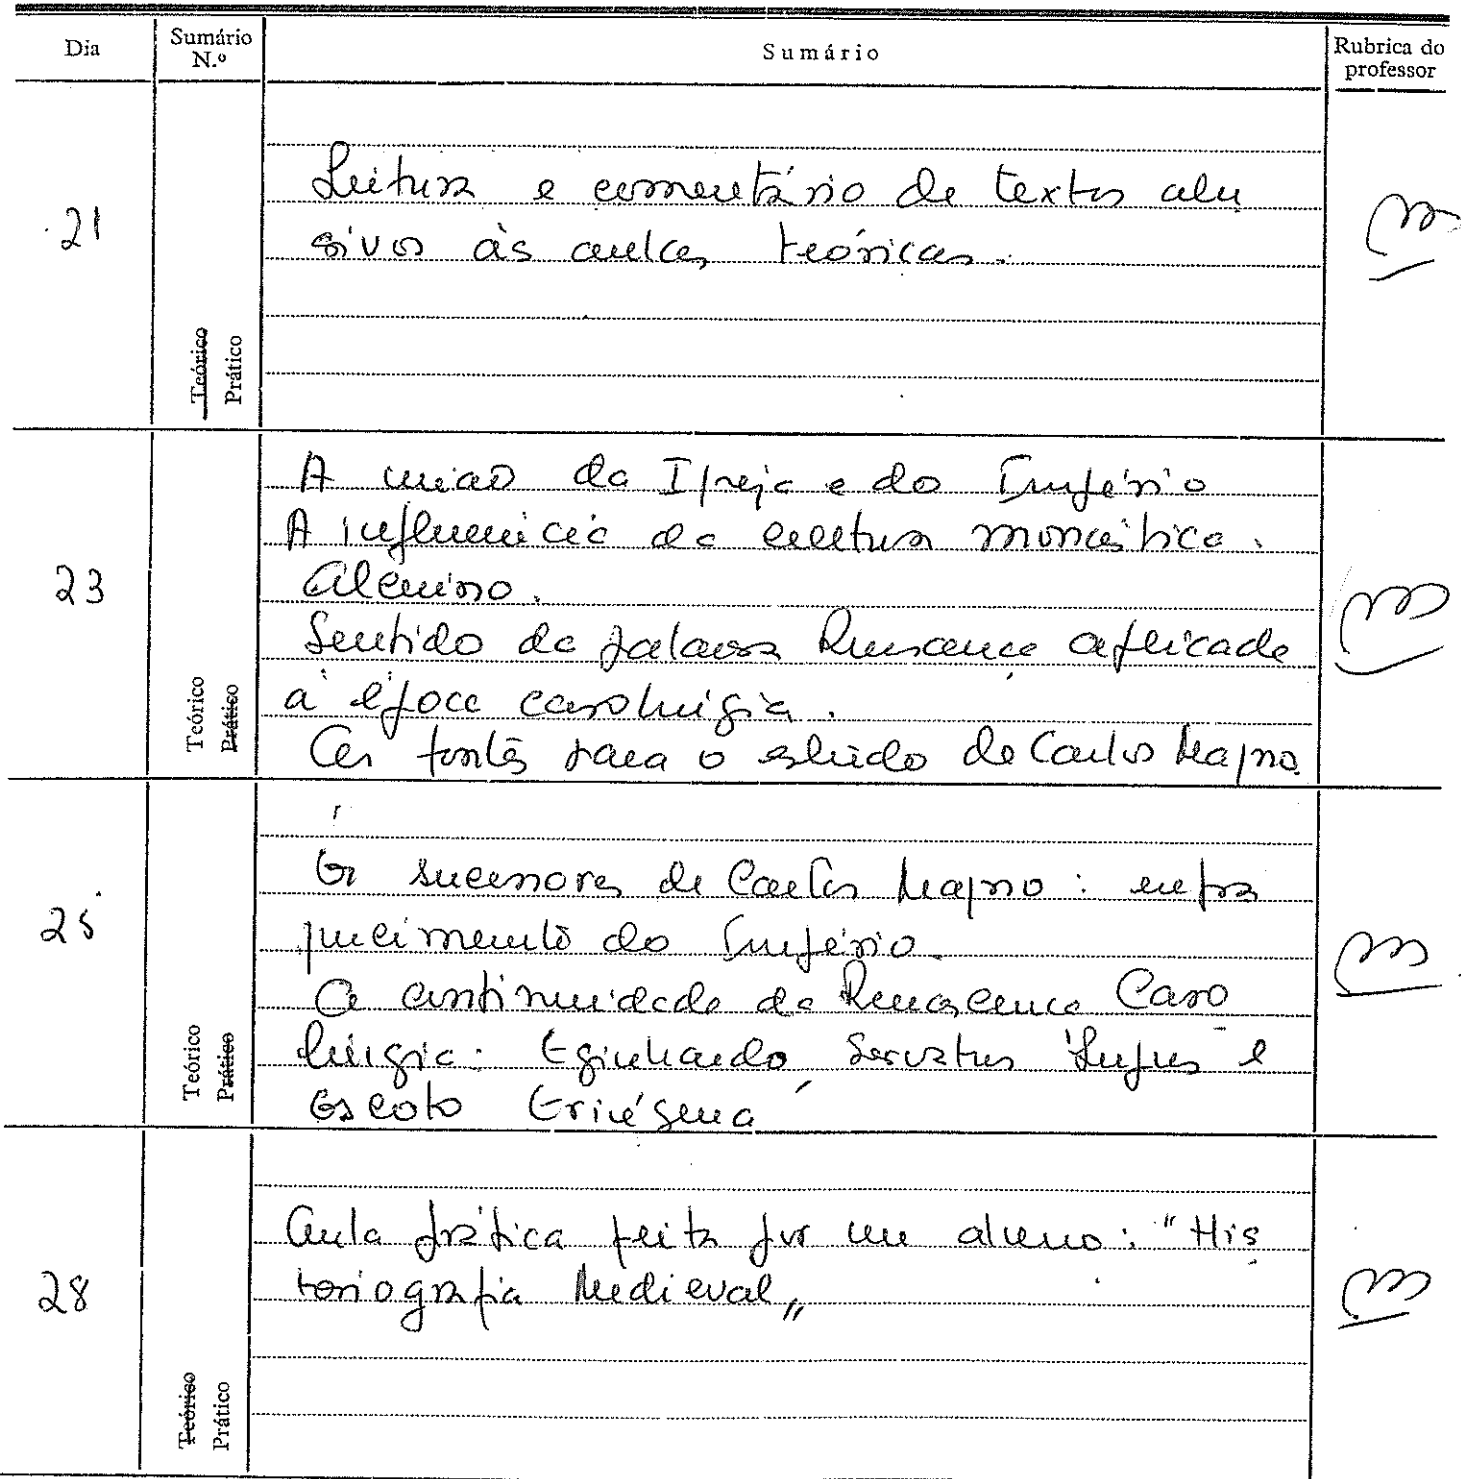 Dia
Sumário
N.º
Sumário
Rubrica do
professor
21
Teórico
Prático
Leitura e comentário de textos alu
sivos às aulas teóricas.
23
Teórico
Prático
A união da Igreja e do Império
A influência da cultura monástica.
Alcuino.
Sentido da palavra Renascença aplicada
à época carolíngia.
As fontes para o estudo de Carlos Magno
25
Teórico
Prático
Os sucessores de Carlos Magno: enfra
quecimento do Império.
A continuidade da Renascença Caro
língia: Eginhardo, Servatus Lupus e
Escoto Eriúgena
28
Teórico
Prático
Aula prática feita por um aluno: "His
toriografia Medieval„